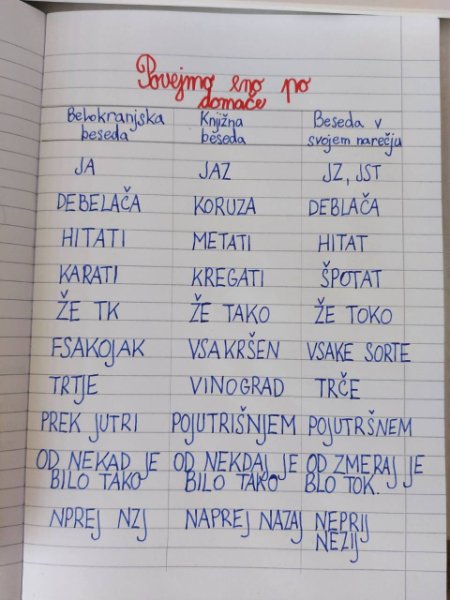 Povejmo eno po
domače
Belokranjska beseda Knjižna beseda Beseda v svojem narečja
JA JAZ JZ, JST
DEBELAČA KORUZA DEBLAČA
HITATI METATI HITAT
KARATI KREGATI ŠPOTAT
ŽE TK ŽE TAKO ŽE TOKO
FSAKOJAK VSAKRŠEN VSAKE SORTE
TRTJE VINOGRAD TRČE
PREK JUTRI POJUTRIŠNJEM POJUTRŠNEM
OD NEKAD JE OD NEKDAJ JE OD ZMERAJ JE
BILO TAKO BILO TAKO BLO TOK.
NPREJ NZJ NAPREJ NAZAJ NEPRIJ
NEZIJ